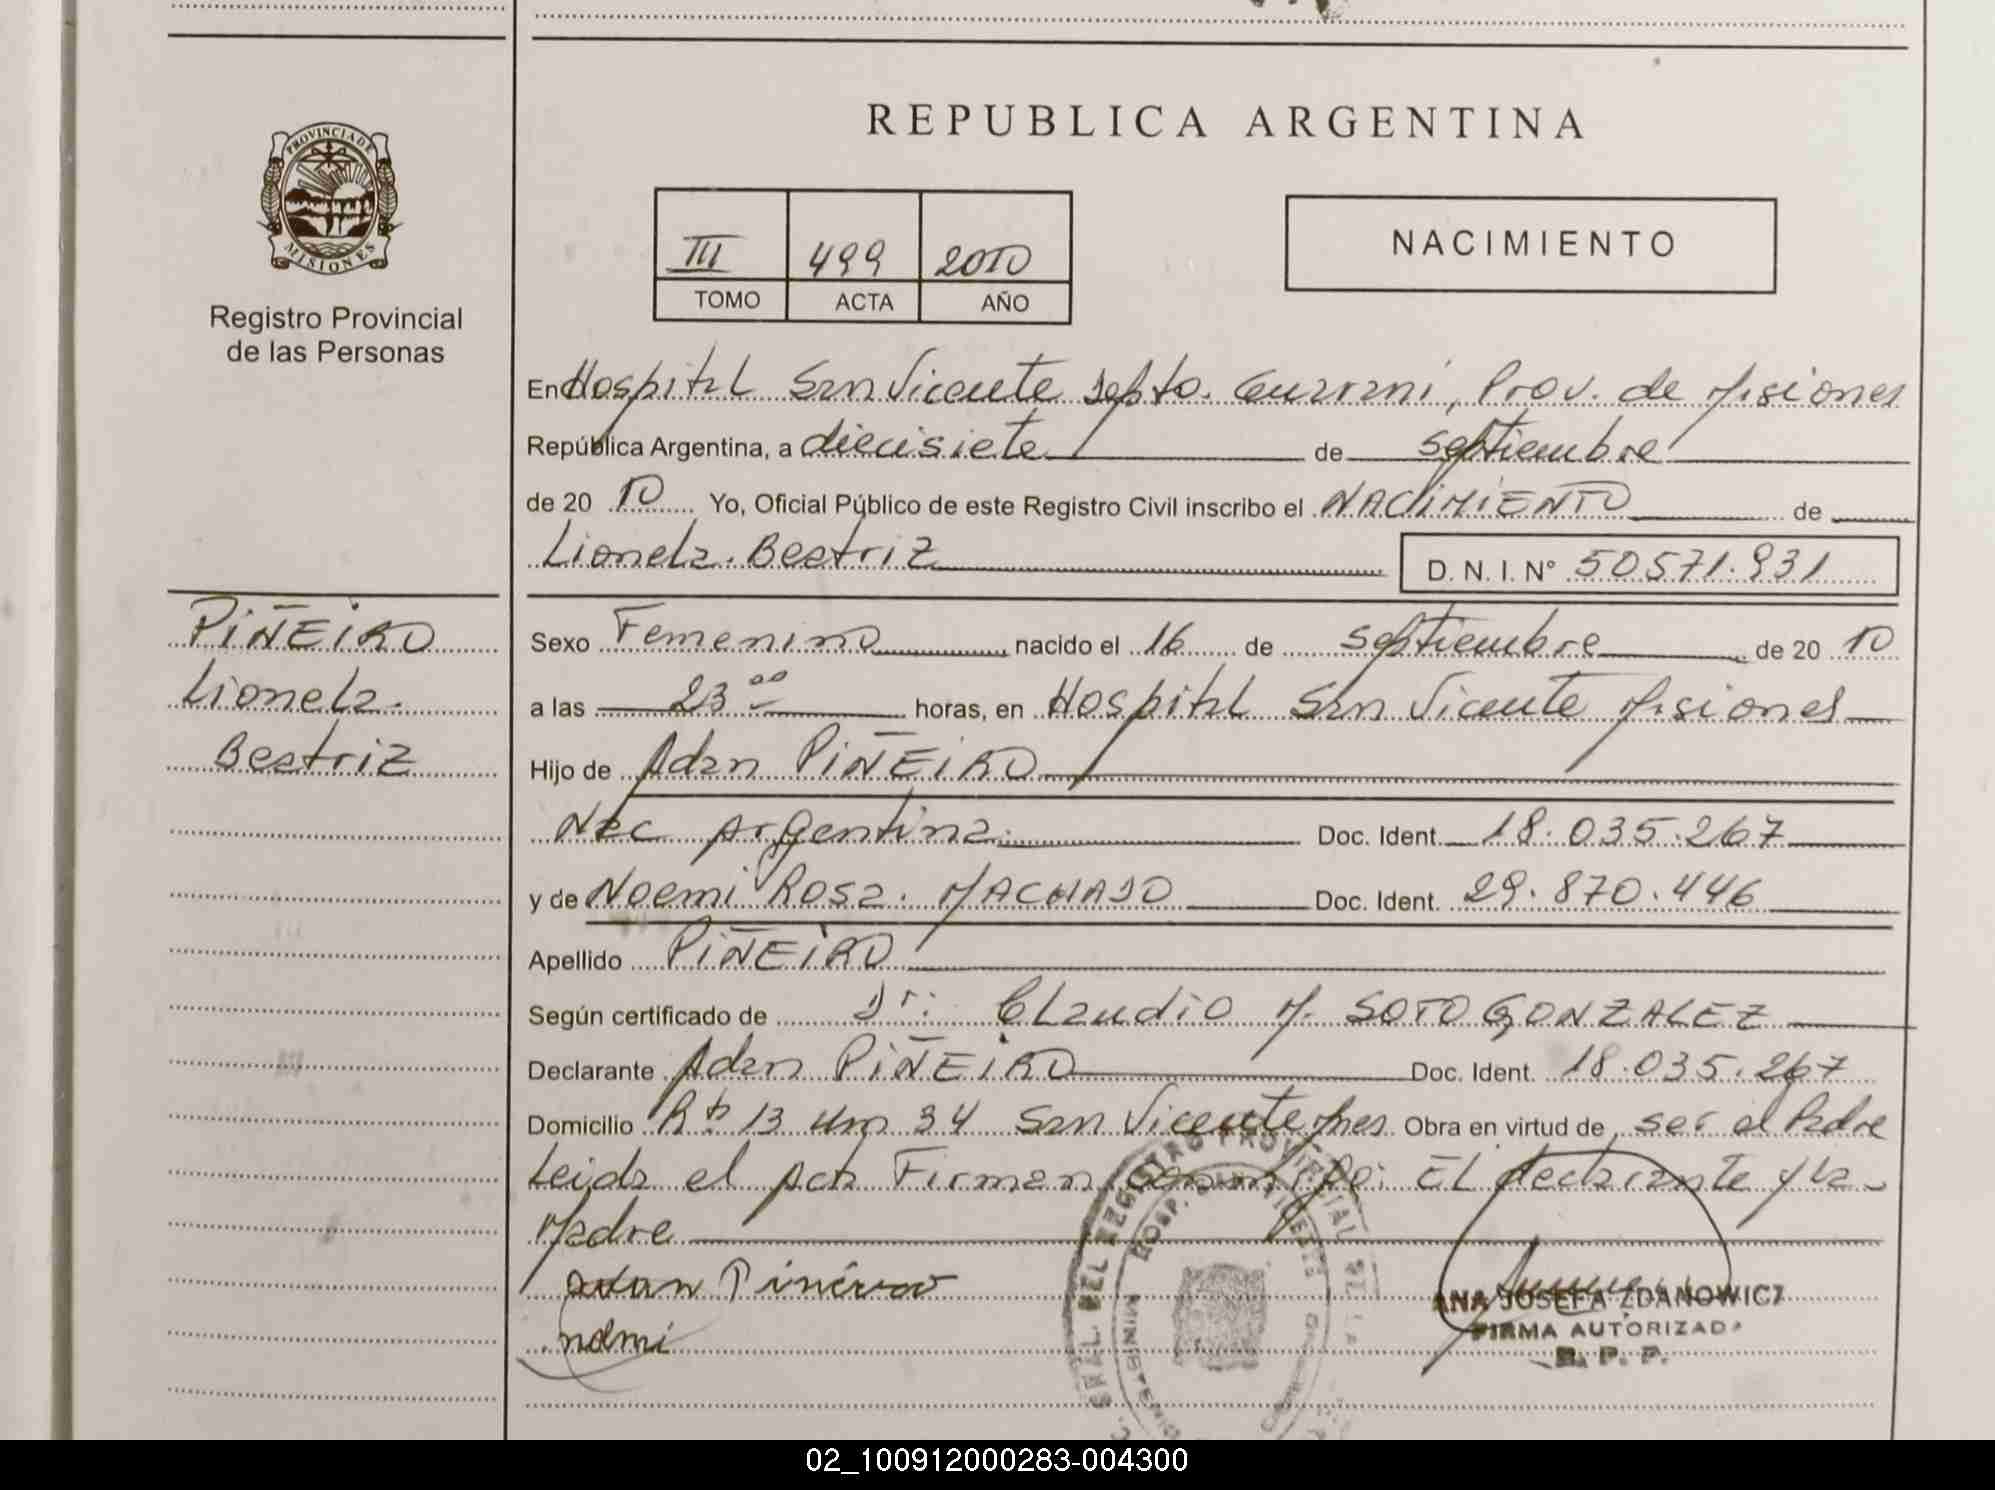 REPUBLICA ARGENTINA
PROVINCIA DE
MISIONES
Registro Provincial
de las Personas
III 499 2010
TOMO ACTA AÑO
NACIMIENTO
En Hospital San Vicente Depto. Guarani, Prov. de Misiones
República Argentina, a diecisiete de septiembre
de 20 10 Yo, Oficial Público de este Registro Civil inscribo el NACIMIENTO de
Lionela Beatriz D. N. I. N° 50.571.931
PIÑEIRO
Lionela
Beatriz
Sexo Femenino nacido el 16 de septiembre de 20 10
a las 23 00 horas, en Hospital San Vicente Misiones
Hijo de Adan PIÑEIRO
Nac Argentina Doc. Ident. 18.035.267
y de Noemi Rosa MACHADO Doc. Ident. 29.870.446
Apellido PIÑEIRO
Según certificado de Dr. Claudio M. SOTO GONZALEZ
Declarante Adan PIÑEIRO Doc. Ident. 18.035.267
Domicilio 13 Km 34 San Vicente Mnes Obra en virtud de ser el Padre
Leida el Acta Firman conmigo: El declarante y la
Madre
Adan Piñeiro
noemi
GRAL. DEL REGISTRO PROVINCIAL DE LA
HOSP. SAN VICENTE
MINISTERIO
ANA JOSEFA ZDANOWICZ
FIRMA AUTORIZADA
R. P. P.
02_100912000283-004300